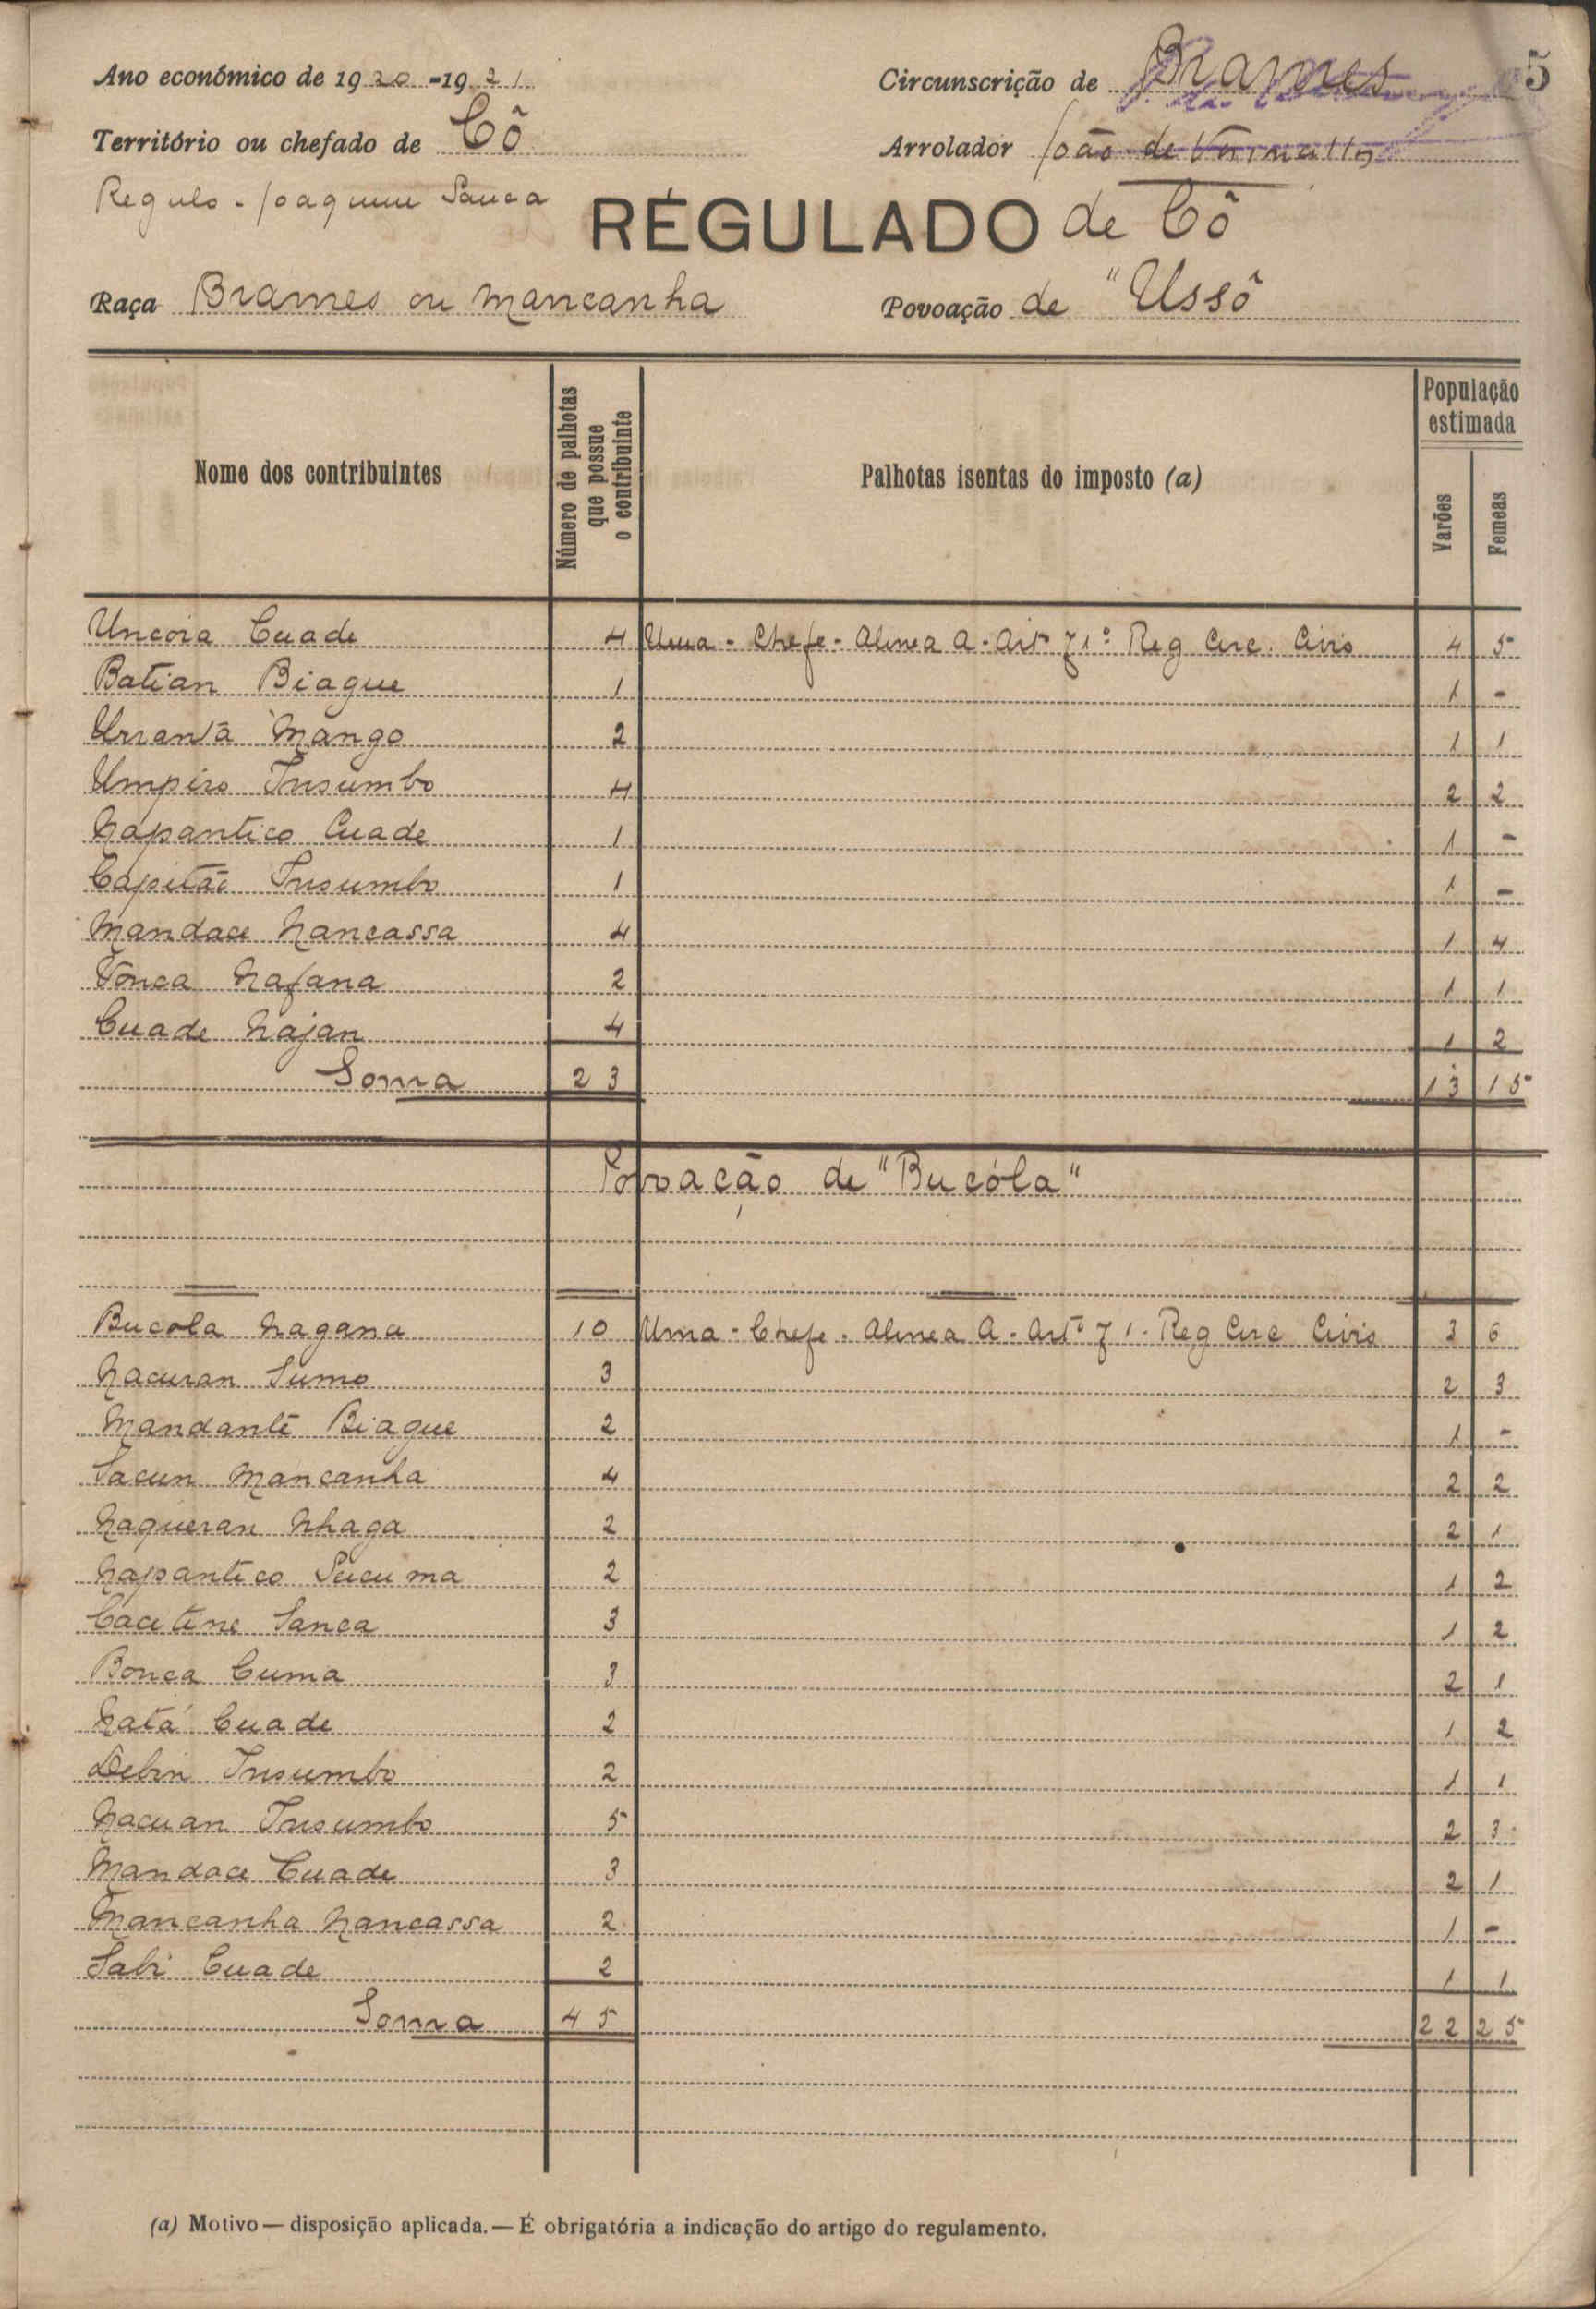 Ano económico de 1920-1921
Circunscrição de Brames 5
Território ou chefado de Cô
Arrolador João de
Regulo - Joaquim Sanca
RÉGULADO de Cô
Raça Brames ou Mancanha
Povoação de "Ussô
Nome dos contribuintes
Número de palhotas que possue o contribuinte
Palhotas isentas do imposto (a)
População estimada
Varões
Femeas
Uncoia Cuade 4 Uma - Chefe - Alinea A - Artº 71º Reg Circ. Civis 4 5
Batian Biague 1 1 -
Urrantã Mango 2 1 1
Umpiro Insumbo 4 2 2
Napantico Cuade 1 1 -
Capitão Insumbo 1 1 -
Mandace Nancassa 4 1 4
Vonca Nafana 2 1 1
Cuade Najan 4 1 2
Soma 23 13 15
Povoação de "Bucóla"
Bucola Nagana 10 Uma - Chefe - Alinea A - Artº 71 - Reg Circ Civis 3 6
Nacuran Sumo 3 2 3
Mandantê Biague 2 1 -
Sacun Mancanha 4 2 2
Naqueran Nhaga 2 2 1
Napantico Sucuma 2 1 2
Cacetine Sanca 3 1 2
Bonca Cuma 3 2 1
Natá Cuade 2 1 2
Debin Insumbo 2 1 1
Nacuan Insumbo 5 2 3
Mandace Cuade 3 2 1
Mancanha Nancassa 2 1 -
Sabi Cuade 2 1 1
Soma 45 22 25
(a) Motivo — disposição aplicada. — É obrigatória a indicação do artigo do regulamento.